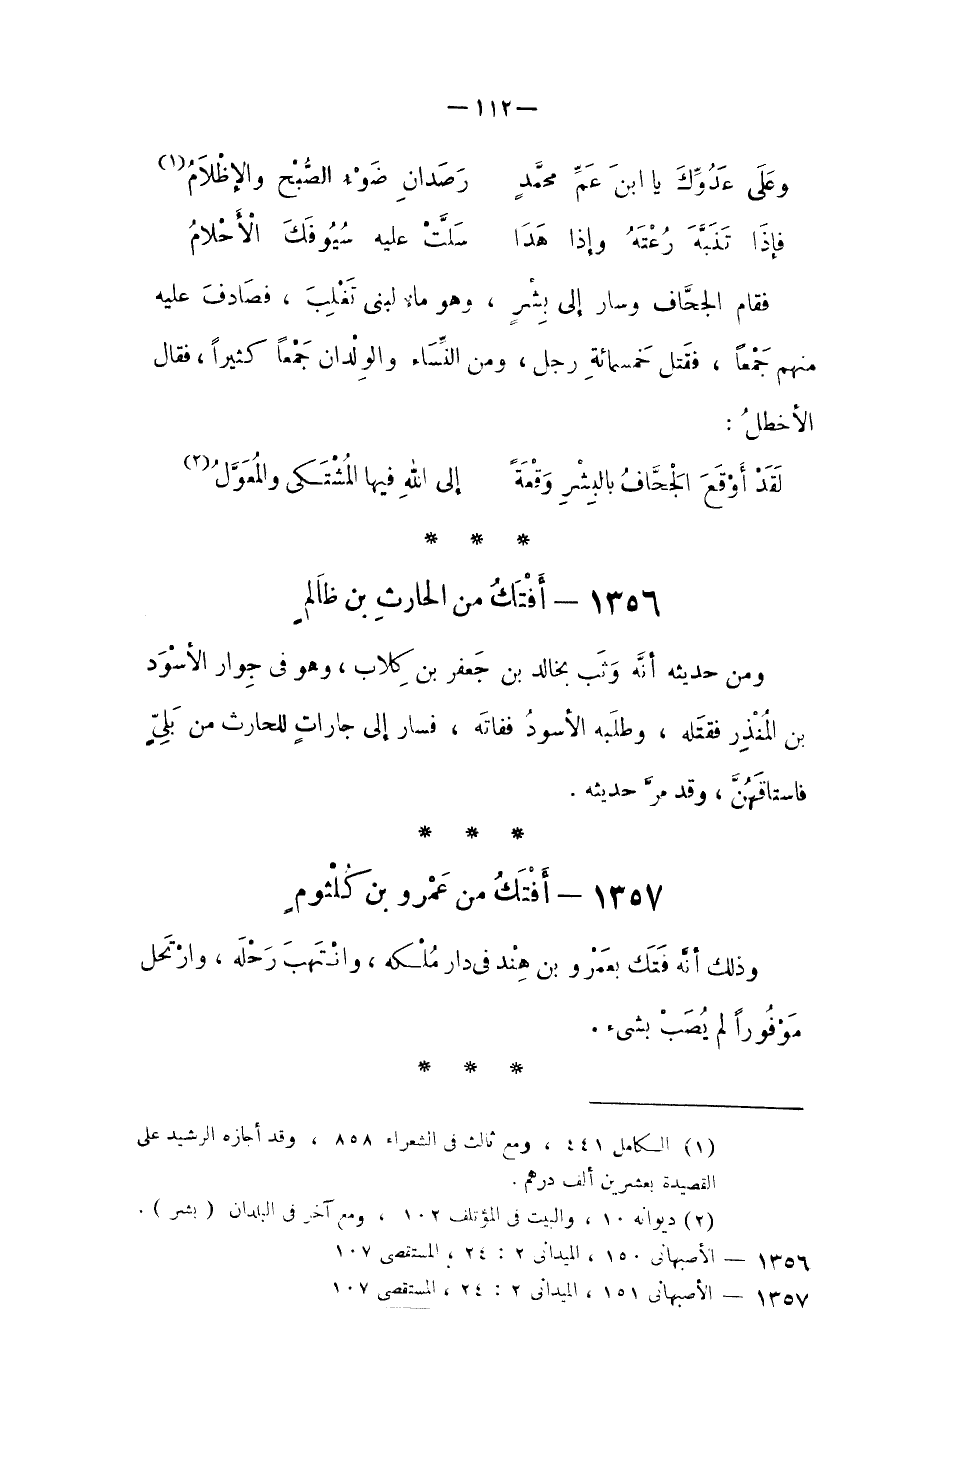 — ١١٢ —
وعَلَى عَدُوِّكَ يا ابنَ عَمِّ محمَّدٍ رَصَدانِ ضَوْءُ الصُّبْحِ والإظْلاَمُ(١)
فإِذَا تَنَبَّهَ رُعْتَهُ وإذا هَدَا سَلَّتْ عليه سُيُوفَكَ الْأَحْلامُ
فقام الجحَّاف وسار إلى بِشْرٍ ، وهو ماءٌ لبنى تَغْلِبَ ، فصَادفَ عليه
منهم جَمْعاً ، فقَتل خمسمائةِ رجل ، ومن النِّسَاء والوِلْدان جَمْعاً كثيراً ، فقال
الأخطلُ :
لَقَدْ أَوْقَعَ الْجَحَّافُ بالبِشْرِ وَقْعَةً إلى اللهِ فيها المُشْتَكى والمُعَوَّلُ(٢)
* * *
١٣٥٦ — أَفْتَكُ من الحارثِ بن ظاَلمٍ
ومن حديثه أنَّه وَثَب بخالد بن جَعفر بن كِلاب ، وهو فى جِوار الأسْوَد
بن المُنْذِر فقتَله ، وطلَبه الأسودُ ففاتَه ، فسار إلى جاراتٍ للحارث من بَلِىٍّ
فاستاقَهُنَّ ، وقد مرَّ حديثه .
* * *
١٣٥٧ — أَفْتَكُ من عَمْرو بن كُلْثومٍ
وذلك أنَّه فَتَك بعَمْرو بن هِنْد فى دار مُلْكه ، وانْتَهبَ رَحْلَه ، وارْتَحل
مَوْفُوراً لم يُصَبْ بشىء .
* * *
(١) الكامل ٤٤١ ، ومع ثالث فى الشعراء ٨٥٨ ، وقد أجازه الرشيد على
القصيدة بعشرين ألف درهم .
(٢) ديوانه ١٠ ، والبيت فى المؤتلف ١٠٢ ، ومع آخر فى البلدان ( بشر ) .
١٣٥٦ — الأصبهانى ١٥٠ ، الميدانى ٢ : ٢٤ ، المستقصى ١٠٧
١٣٥٧ — الأصبهانى ١٥١ ، الميدانى ٢ : ٢٤ ، المستقصى ١٠٧